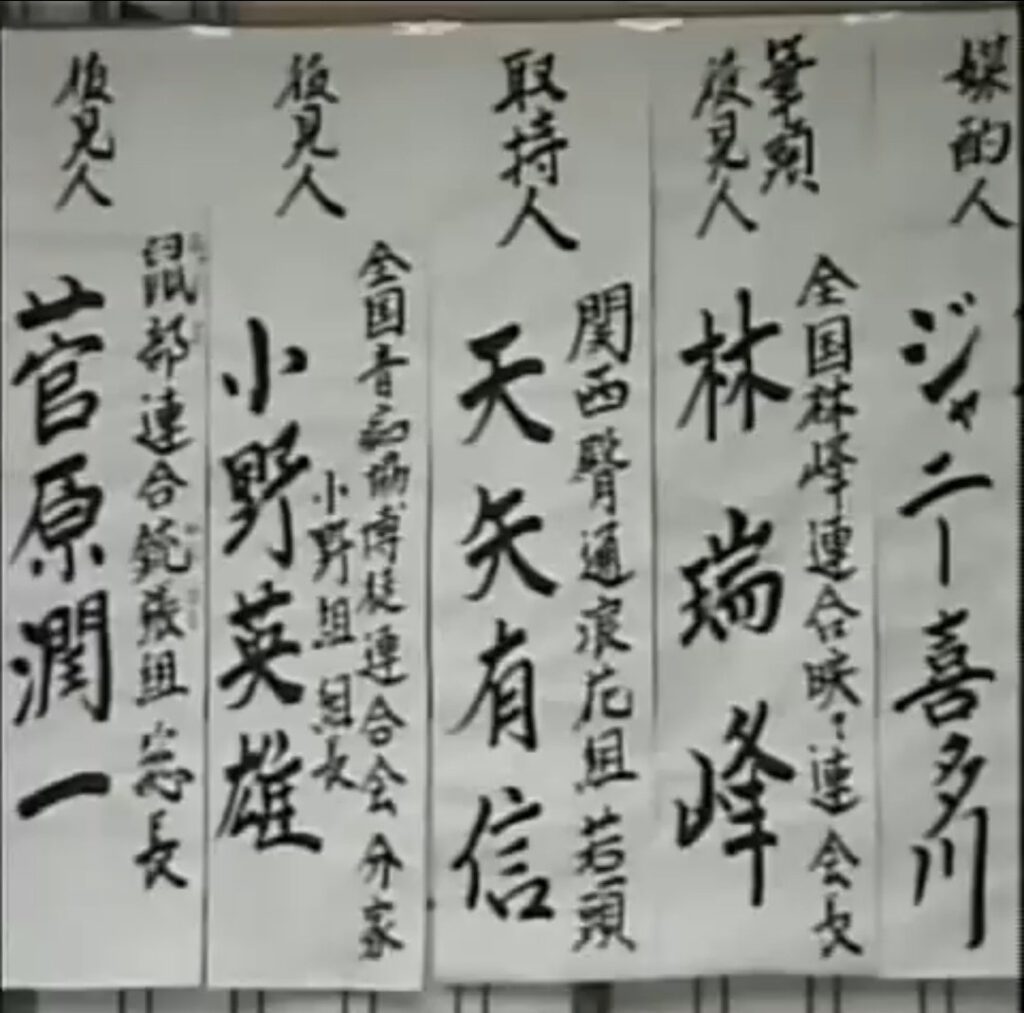 媒酌人
ジャニー喜多川
筆頭
後見人
全国林峰連合映々連会長
林瑞峰
取持人
関西臀通浪花組若頭
天矢有信
後見人
全国音 協博徒連合会分家
小野組組長
小野英雄
後見人
鼠部連合 張組 長
菅原潤一